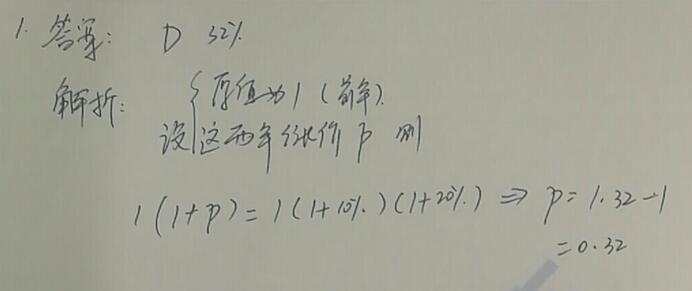 1. 答案: D 32%
解析: 设 { 原值为1 (前年).
这两年统价 P 则
1(1+P)=1(1+10%)(1+20%) ⇒ P=1.32-1
=0.32